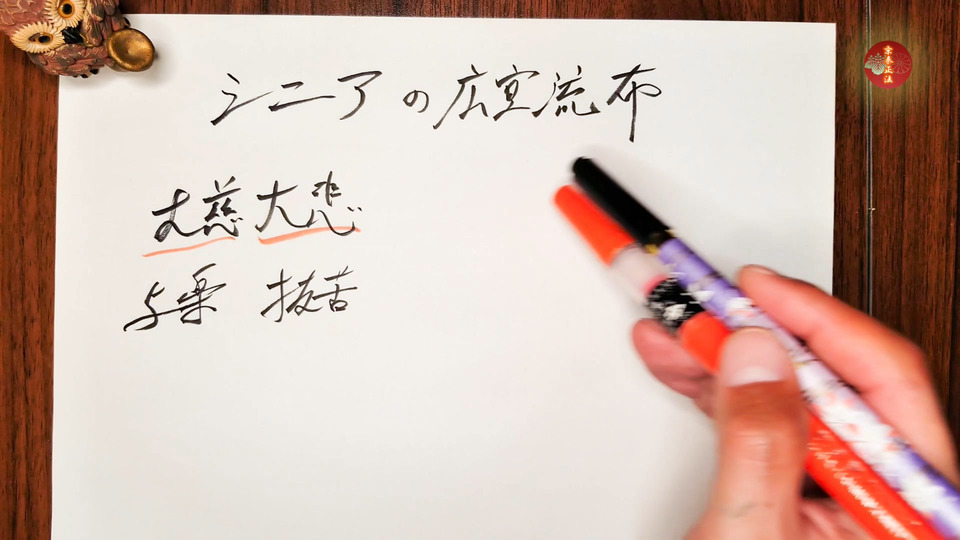 シニアの広宣流布
大慈大悲
与楽 抜苦